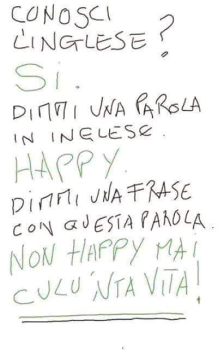 CONOSCI
L'INGLESE?
SI.
DIMMI UNA PAROLA
IN INGLESE.
HAPPY.
DIMMI UNA FRASE
CON QUESTA PAROLA.
NON HAPPY MAI
CULU 'NTA VITA!